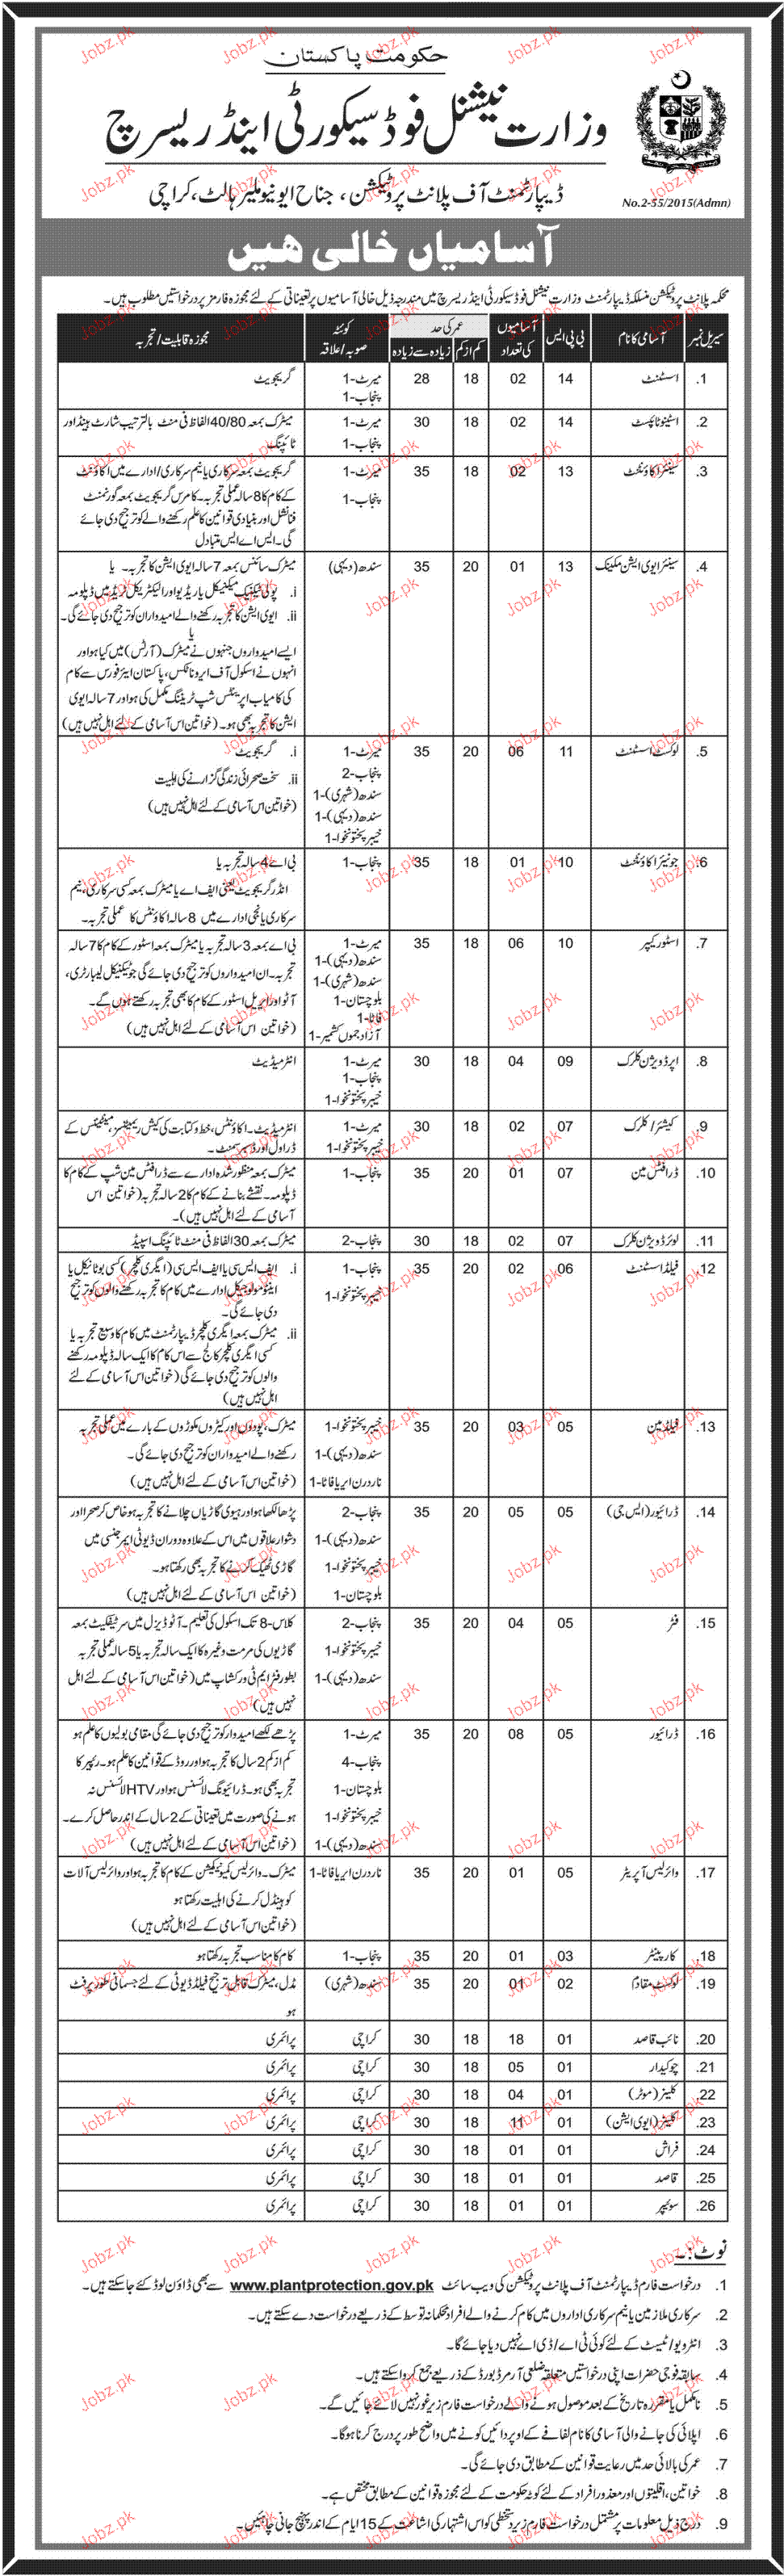 حکومت پاکستان
وزارت نیشنل فوڈ سیکورٹی اینڈ ریسرچ
ڈیپارٹمنٹ آف پلانٹ پروٹیکشن، جناح ایونیو ملیر ہالٹ، کراچی
No.2-55/2015(Admn)
آسامیاں خالی ھیں
محکمہ پلانٹ پروٹیکشن منسلکہ ڈیپارٹمنٹ وزارت نیشنل فوڈ سیکورٹی اینڈ ریسرچ میں مندرجہ ذیل خالی آسامیوں پر تعیناتی کے لئے مجوزہ فارمز پر درخواستیں مطلوب ہیں۔
سیریل نمبر آسامی کا نام بی پی ایس آسامیوں کی تعداد عمر کی حد کم از کم زیادہ سے زیادہ کوٹہ صوبہ/علاقہ مجوزہ قابلیت/تجربہ
1. اسسٹنٹ 14 02 18 28 میرٹ-1 گریجویٹ
پنجاب-1
2. اسٹینو ٹائپسٹ 14 02 18 30 میرٹ-1 میٹرک بمعہ 40/80 الفاظ فی منٹ بالترتیب شارٹ ہینڈ اور
پنجاب-1 ٹائپنگ
3. سینئر اکاؤنٹنٹ 13 02 18 35 میرٹ-1 گریجویٹ بمعہ سرکاری یا نیم سرکاری/ادارے میں اکاؤنٹ
پنجاب-1 کے کام کا 8 سالہ عملی تجربہ۔ کامرس گریجویٹ بمعہ گورنمنٹ
فنانشل اور بنیادی قوانین کا علم رکھنے والے کو ترجیح دی جائے
گی۔ ایس اے ایس متبادل
4. سینئر ایوی ایشن مکینک 13 01 20 35 سندھ (دیہی) میٹرک سائنس بمعہ 7 سالہ ایوی ایشن کا تجربہ۔ یا
i. پولی ٹیکنیک میکنیکل یا ریڈیو اور الیکٹریکل ٹریڈ میں ڈپلومہ
ii. ایوی ایشن کا تجربہ رکھنے والے امیدواران کو ترجیح دی جائے گی۔
یا
ایسے امیدواروں جنہوں نے میٹرک (آرٹس) میں کیا ہو اور
انہوں نے اسکول آف ایروناٹکس، پاکستان ایئر فورس سے کام
کی کامیاب اپرینٹس شپ ٹریننگ مکمل کی ہو اور 7 سالہ ایوی
ایشن کا تجربہ بھی ہو۔ (خواتین اس آسامی کے لئے اہل نہیں ہیں)
5. لوکسٹ اسسٹنٹ 11 06 20 35 میرٹ-1 i. گریجویٹ
پنجاب-2 ii. سخت صحرائی زندگی گزارنے کی اہلیت
سندھ (شہری)-1 (خواتین اس آسامی کے لئے اہل نہیں ہیں)
سندھ (دیہی)-1
خیبر پختونخوا-1
6. جونیئر اکاؤنٹنٹ 10 01 18 35 پنجاب-1 بی اے 4 سالہ تجربہ یا
انڈر گریجویٹ یعنی ایف اے یا میٹرک بمعہ کسی سرکاری، نیم
سرکاری یا نجی ادارے میں 8 سالہ اکاؤنٹس کا عملی تجربہ۔
7. اسٹور کیپر 10 06 18 35 میرٹ-1 بی اے بمعہ 3 سالہ تجربہ یا میٹرک بمعہ اسٹور کے کام کا 7 سالہ
سندھ (دیہی)-1 تجربہ۔ ان امیدواروں کو ترجیح دی جائے گی جو ٹیکنیکل لیبارٹری،
سندھ (شہری)-1 آٹو اور ایریل اسٹور کے کام کا بھی تجربہ رکھتے ہوں گے۔
بلوچستان-1 (خواتین اس آسامی کے لئے اہل نہیں ہیں)
فاٹا-1
آزاد جموں کشمیر-1
8. اپر ڈویژن کلرک 09 04 18 30 میرٹ-1 انٹرمیڈیٹ
پنجاب-1
خیبر پختونخوا-1
9. کیشئر/کلرک 07 02 18 30 میرٹ-1 انٹرمیڈیٹ۔ اکاؤنٹس، خط و کتابت کی کیش ریمیٹنسز، مینٹیننس کے
خیبر پختونخوا-1
10. ڈرافٹس مین 07 01 20 35 پنجاب-1 میٹرک بمعہ منظور شدہ ادارے سے ڈرافٹس مین شپ کے کام کا
ڈپلومہ۔ نقشے بنانے کے کام کا 2 سالہ تجربہ (خواتین اس
آسامی کے لئے اہل نہیں ہیں)۔
11. لوئر ڈویژن کلرک 07 02 18 30 پنجاب-2 میٹرک بمعہ 30 الفاظ فی منٹ ٹائپنگ اسپیڈ
12. فیلڈ اسسٹنٹ 06 02 20 35 پنجاب-1 i. ایف ایس سی یا ایف ایس سی (ایگری کلچر) کسی بوٹانیکل یا
خیبر پختونخوا-1 اینٹومولوجیکل ادارے میں کام کا تجربہ رکھنے والوں کو ترجیح
دی جائے گی۔
ii. میٹرک بمعہ ایگری کلچر ڈیپارٹمنٹ میں کام کا وسیع تجربہ یا
کسی ایگری کلچر کالج سے اس کام کا ایک سالہ ڈپلومہ رکھنے
والوں کو ترجیح دی جائے گی (خواتین اس آسامی کے لئے
اہل نہیں ہیں)
13. فیلڈ مین 05 03 20 35 خیبر پختونخوا-1 میٹرک، پودوں اور کیڑوں مکوڑوں کے بارے میں عملی تجربہ
سندھ (دیہی)-1 رکھنے والے امیدواران کو ترجیح دی جائے گی۔
ناردرن ایریا فاٹا-1 (خواتین اس آسامی کے لئے اہل نہیں ہیں)
14. ڈرائیور (ایس جی) 05 05 20 35 پنجاب-2 پڑھا لکھا ہو اور ہیوی گاڑیاں چلانے کا تجربہ ہو خاص کر صحرا اور
سندھ (دیہی)-1 دشوار علاقوں میں اس کے علاوہ دوران ڈیوٹی ایمرجنسی میں
خیبر پختونخوا-1 گاڑی ٹھیک کرنے کا تجربہ بھی رکھتا ہو۔
بلوچستان-1 (خواتین اس آسامی کے لئے اہل نہیں ہیں)
15. فٹر 05 04 20 35 پنجاب-2 کلاس-8 تک اسکول کی تعلیم۔ آٹو ڈیزل میں سرٹیفکیٹ بمعہ
خیبر پختونخوا-1 گاڑیوں کی مرمت وغیرہ کا ایک سالہ تجربہ یا 5 سالہ عملی تجربہ
سندھ (دیہی)-1 بطور فٹر ایم ٹی ورکشاپ میں (خواتین اس آسامی کے لئے اہل
نہیں ہیں)
16. ڈرائیور 05 08 20 35 میرٹ-1 پڑھے لکھے امیدوار کو ترجیح دی جائے گی مقامی بولیوں کا علم ہو
پنجاب-4 کم از کم 2 سال کا تجربہ ہو اور روڈ کے قوانین کا علم ہو۔ رپیئر کا
بلوچستان-1 تجربہ بھی ہو۔ ڈرائیونگ لائسنس ہو اور HTV لائسنس نہ
خیبر پختونخوا-1 ہونے کی صورت میں تعیناتی کے 2 سال کے اندر حاصل کرے۔
سندھ (دیہی)-1 (خواتین اس آسامی کے لئے اہل نہیں ہیں)
17. وائرلیس آپریٹر 05 01 20 35 ناردرن ایریا فاٹا-1 میٹرک۔ وائرلیس کمیونیکیشن کے کام کا تجربہ ہو اور وائرلیس آلات
کو ہینڈل کرنے کی اہلیت رکھتا ہو
(خواتین اس آسامی کے لئے اہل نہیں ہیں)
18. کارپینٹر 03 01 20 35 پنجاب-1 کام کا مناسب تجربہ رکھتا ہو
19. لوکسٹ مقادم 02 01 20 35 سندھ (شہری) مڈل، میٹرک قابل ترجیح فیلڈ ڈیوٹی کے لئے جسمانی طور پر فٹ
ہو
20. نائب قاصد 01 18 18 30 کراچی پرائمری
21. چوکیدار 01 05 18 30 کراچی پرائمری
22. کلینر (موٹر) 01 04 18 30 کراچی پرائمری
23. کلینر (ایوی ایشن) 01 11 18 30 کراچی پرائمری
24. فراش 01 01 18 30 کراچی پرائمری
25. قاصد 01 01 18 30 کراچی پرائمری
26. سویپر 01 01 18 30 کراچی پرائمری
نوٹ:۔
1. درخواست فارم ڈیپارٹمنٹ آف پلانٹ پروٹیکشن کی ویب سائٹ www.plantprotection.gov.pk سے بھی ڈاؤن لوڈ کئے جاسکتے ہیں۔
2. سرکاری ملازمین یا نیم سرکاری اداروں میں کام کرنے والے افراد محکمانہ توسط کے ذریعے درخواست دے سکتے ہیں۔
3. انٹرویو/ٹیسٹ کے لئے کوئی ٹی اے/ڈی اے نہیں دیا جائے گا۔
4. سابقہ فوجی حضرات اپنی درخواستیں متعلقہ ضلعی آرمڈ بورڈ کے ذریعے جمع کرواسکتے ہیں۔
5. نامکمل یا مقررہ تاریخ کے بعد موصول ہونے والے درخواست فارم زیر غور نہیں لائے جائیں گے۔
6. اپلائی کی جانے والی آسامی کا نام لفافے کے اوپر دائیں کونے میں واضح طور پر درج کرنا ہوگا۔
7. عمر کی بالائی حد میں رعایت قوانین کے مطابق دی جائے گی۔
8. خواتین، اقلیتوں اور معذور افراد کے لئے کوٹہ حکومت کے لئے مجوزہ قوانین کے مطابق مختص ہے۔
9. درج ذیل معلومات پر مشتمل درخواست فارم زیر دستخطی کو اس اشتہار کی اشاعت کے 15 ایام کے اندر پہنچ جانی چاہئیں۔
Jobz.pk